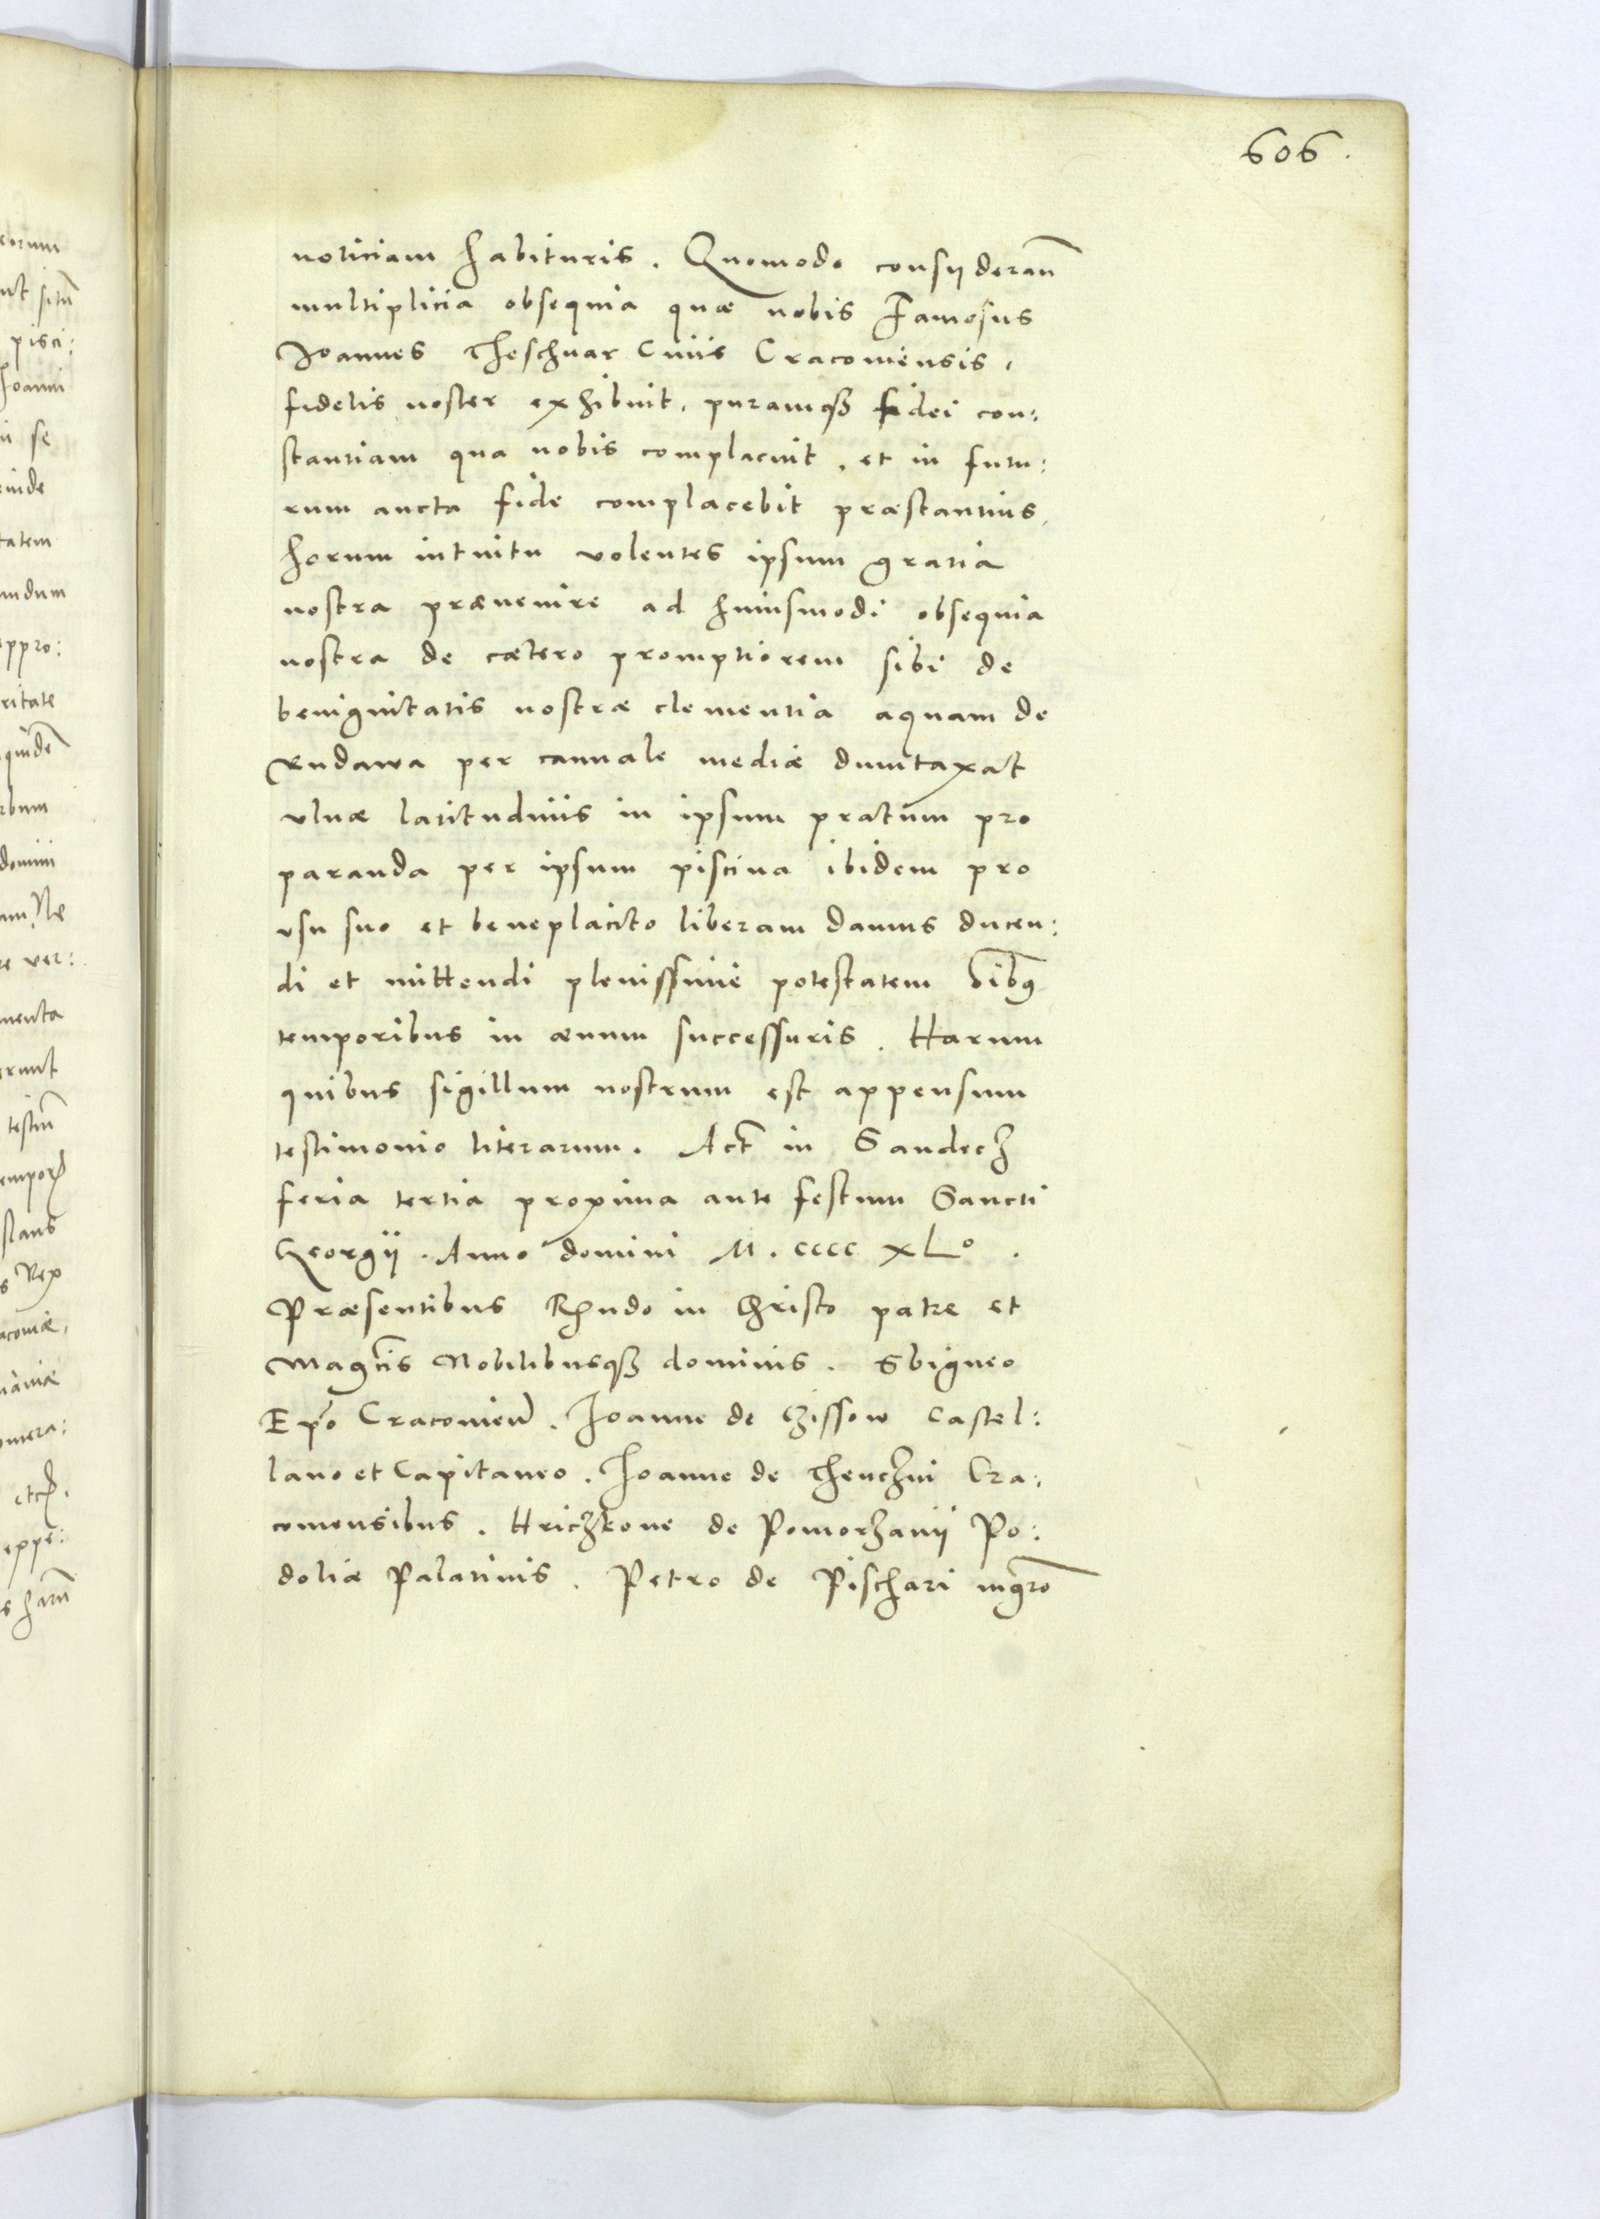 606.
noticiam habituris. Quomodo consyderan̄
multiplicia obsequia quæ nobis Famosus
Joannes Theschnar Ciuis Cracouiensis,
fidelis noster exhibuit, puramqꝫ fidei con:
stantiam qua nobis complacuit, et in futu:
rum aucta fide complacebit præstantius,
horum intuitu volentes ipsum gratia
nostra præuenire ad huiusmodi obsequia
nostra de cætero promptiorem sibi de
benignitatis nostræ clementia aquam de
Rudawa per cannale mediæ dumtaxat
vlnæ latitudinis in ipsum pratum pro
paranda per ipsum piscina ibidem pro
vsu suo et beneplacito liberam damus ducen:
di et mittendi plenissime potestatem oībꝯ
temporibus in æuum successuris. Harum
quibus sigillum nostrum est appensum
testimonio literarum. Act̄ in Sandecz
feria tertia proxima ante festum Sancti
Georgij. Anno domini M. cccc xLº.
Præsentibus Rndo in Christo patre et
Magcis Nobilibusqꝫ dominis. Sbigneo
Epo Cracouien̄. Joanne de Czissow Castel:
lano et Capitaneo. Joanne de Thenczin Cra:
couiensibus. Hriczkone de Pomorzanij Po:
doliæ Palatinis. Petro de Pischari mgro